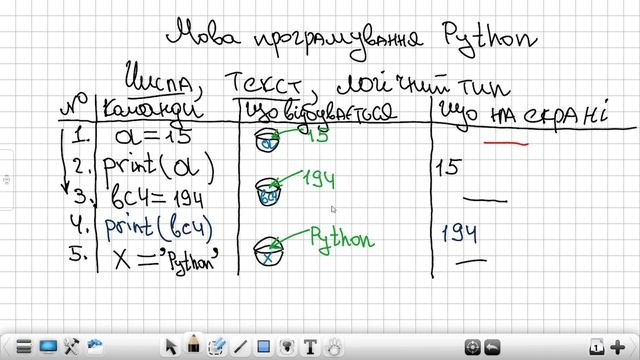 Мова програмування Python
Числа, Текст, логічний тип
№ Команди Що відбувається Що на екрані
1. a=15 a 15 —
2. print(a) 15
3. вс4=194 вс4 194 —
4. print(вс4) 194
5. X='Python' X Python —
T
1